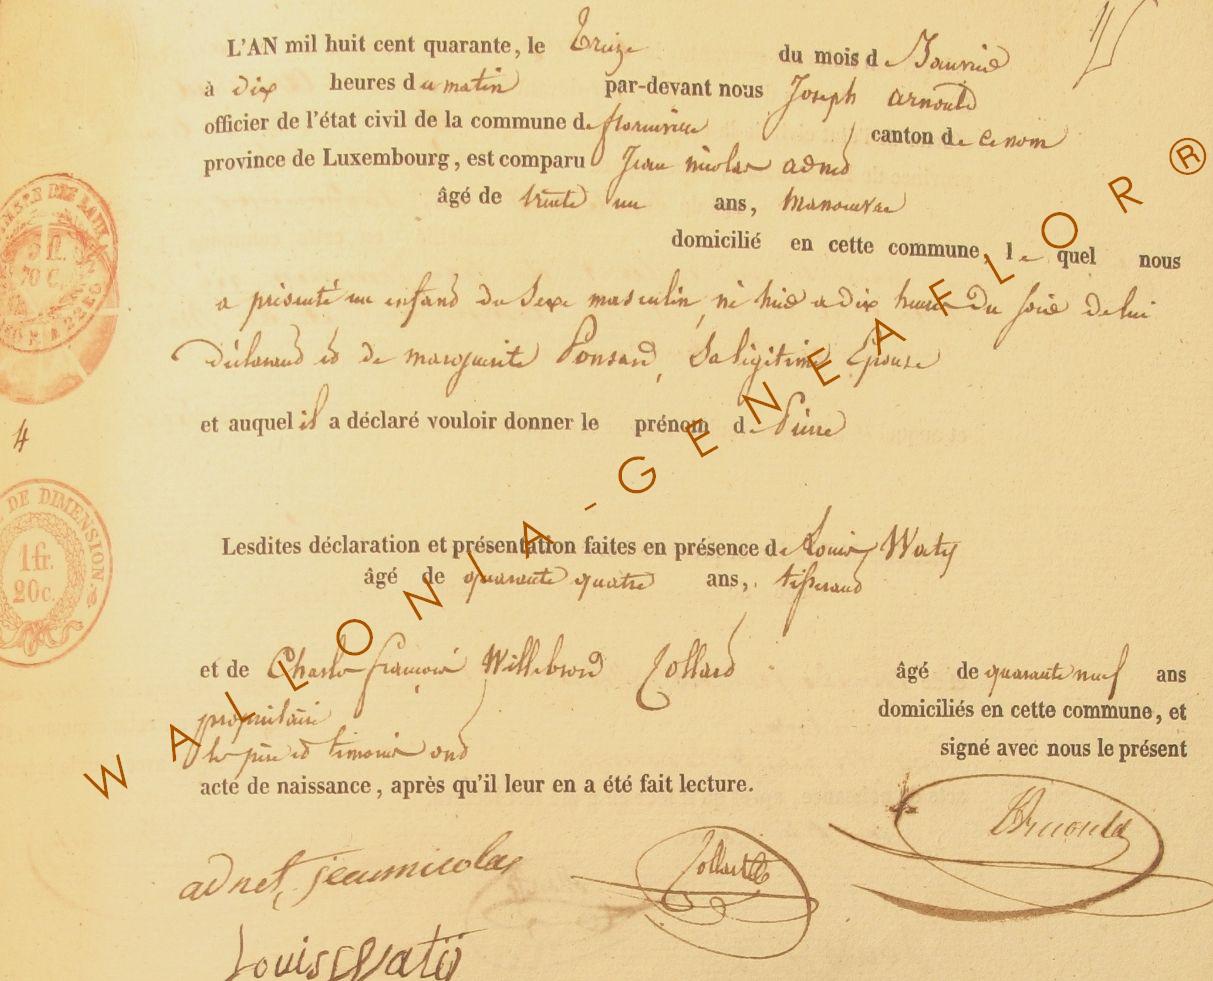 L'AN mil huit cent quarante, le treize du mois de Janvier
à dix heures du matin par-devant nous Joseph arnould
officier de l'état civil de la commune de florenville canton de ce nom
province de Luxembourg, est comparu Jean nicolas adnet
âgé de trente un ans, manoeuvre
domicilié en cette commune, lequel nous
a présenté un enfant du Sexe masculin, né hier a dix heures du soir de lui
déclarant et de marguerite Ponsard, Sa légitime Epouse
et auquel il a déclaré vouloir donner le prénom de Pierre
4
DE DIMENSION
1 fr.
20 c.
Lesdites déclaration et présentation faites en présence de Louis Waty
âgé de quarante quatre ans, tisserand
et de Charles françois Willebrord Collard âgé de quarante neuf ans
propriétaire domiciliés en cette commune, et
les père et témoins ont signé avec nous le présent
acte de naissance, après qu'il leur en a été fait lecture.
adnet, jeannicolas
Collard
Arnould
Louis Watÿ
WALLONIA-GENEAFLOR®